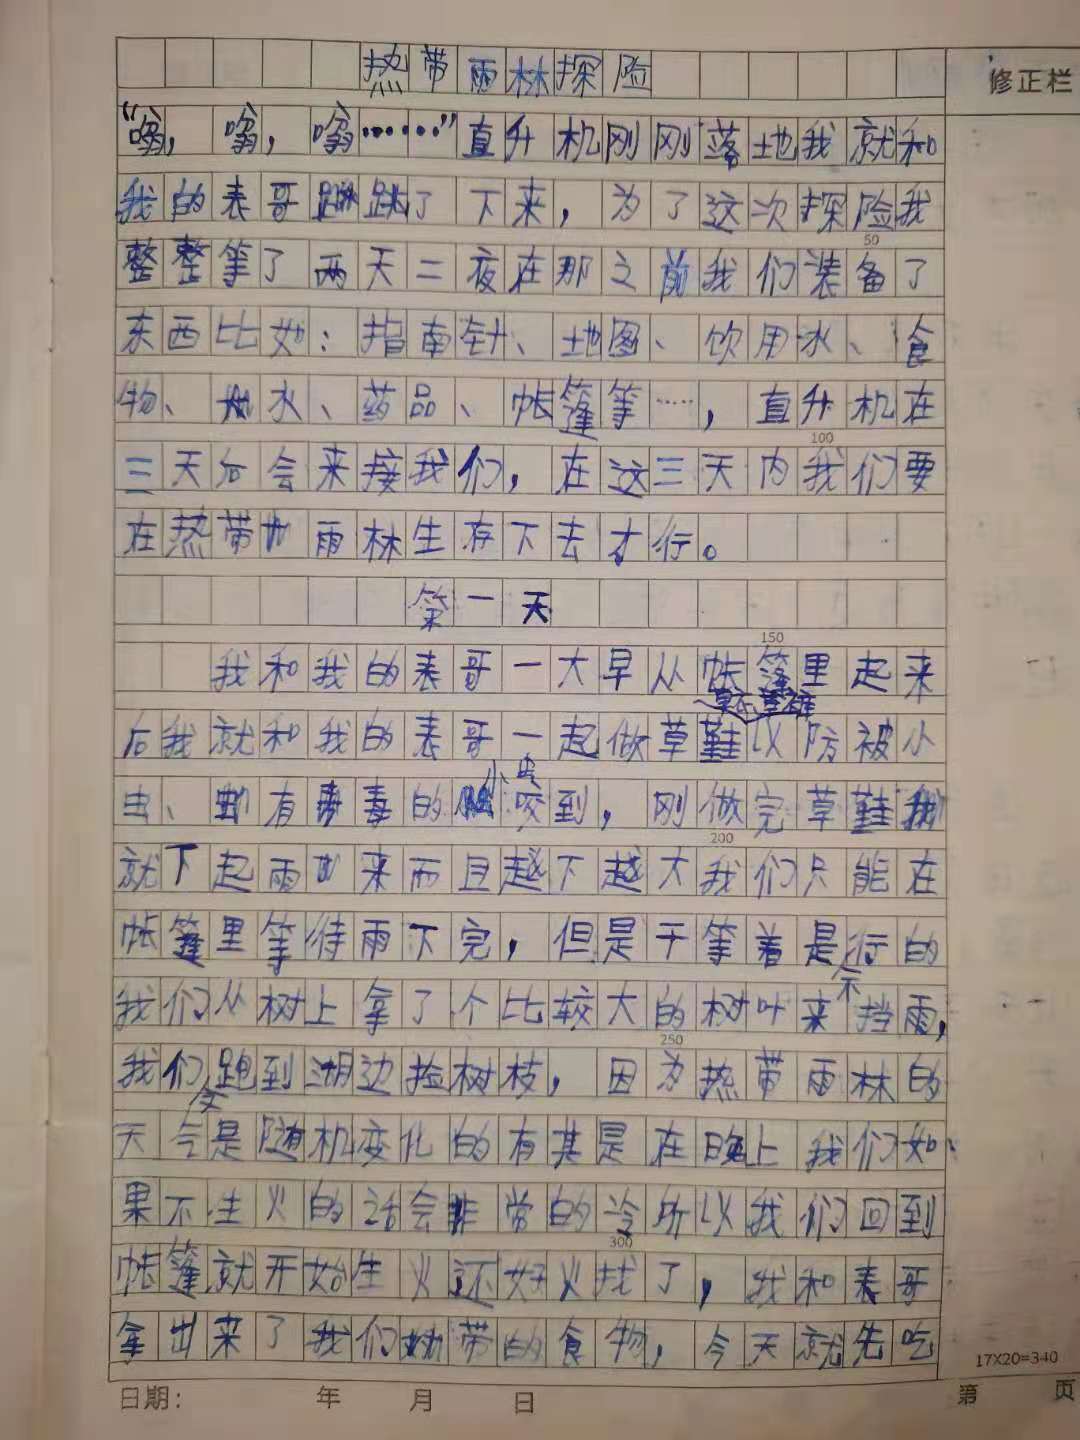 热带雨林探险
修正栏
“嗡，嗡，嗡……”直升机刚刚落地我就和
我的表哥跳了下来，为了这次探险我
整整等了两天二夜在那之前我们装备了
50
东西比如：指南针、地图、饮用水、食
物、水、药品、帐篷等……，直升机在
100
三天后会来接我们，在这三天内我们要
在热带雨林生存下去才行。
第一天
150
我和我的表哥一大早从帐篷里起来
后我就和我的表哥一起做草鞋以防被小
虫、有毒的小虫咬到，刚做完草鞋
200
就下起雨来而且越下越大我们只能在
帐篷里等待雨下完，但是干等着是不行的
我们从树上拿了个比较大的树叶来挡雨，
250
我们跑到湖边捡树枝，因为热带雨林的
天气是随机变化的有其是在晚上我们如
果不生火的话会非常的冷所以我们回到
300
帐篷就开始生火还好火找了，我和表哥
拿出来了我们带的食物，今天就先吃
17X20=340
日期： 年 月 日 第 页